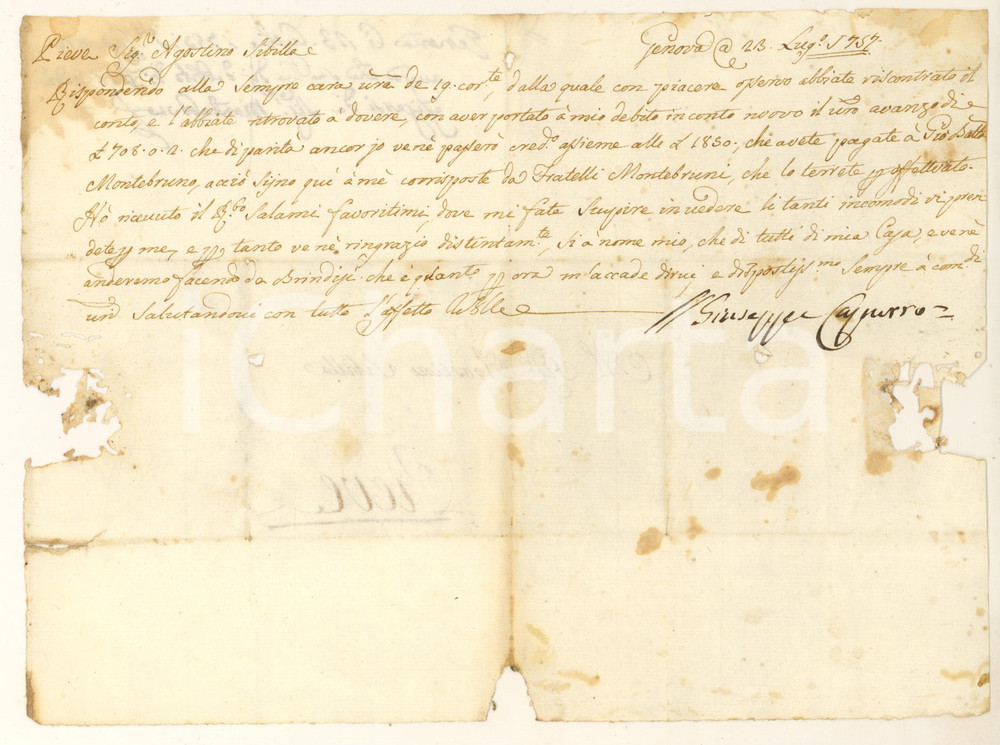 Pieve Sig.r Agostino Sibilla Genova @ 23. Lug.o 1757.
Rispondendo alla sempre cara vr̃a de 19. cor.te, dalla quale con piacere osservo abbiate riscontrato il
conto, e l'abbiate ritrovato à dovere, con aver portato à mio debito in conto nuovo il vr̃o avanzo di
£ 708. 0. 2. che di parità ancor jo ve nè passerò cred.o assieme alle £ 1850: che avete pagate à Gio Batta
Montebruno, acciò sijno quì à mè corrisposte da Fratelli Montebruni, che lo terrete effettuato.
Hò ricevuto il Salami favoritimi, dove mi fate stupire in vedere li tanti incomodi vi pren
dete me, e tanto ve nè ringrazio distintam.te, sì à nome mio, che di tutti di mia Casa, e ve nè
anderemo facendo da Brindisi che e quanto ora m'accade dirvi e dispostiss.mo sempre à com.di
vr̃i salutandovi con tutto l'affetto
Giuseppe Capurro
iCharta
Pieve